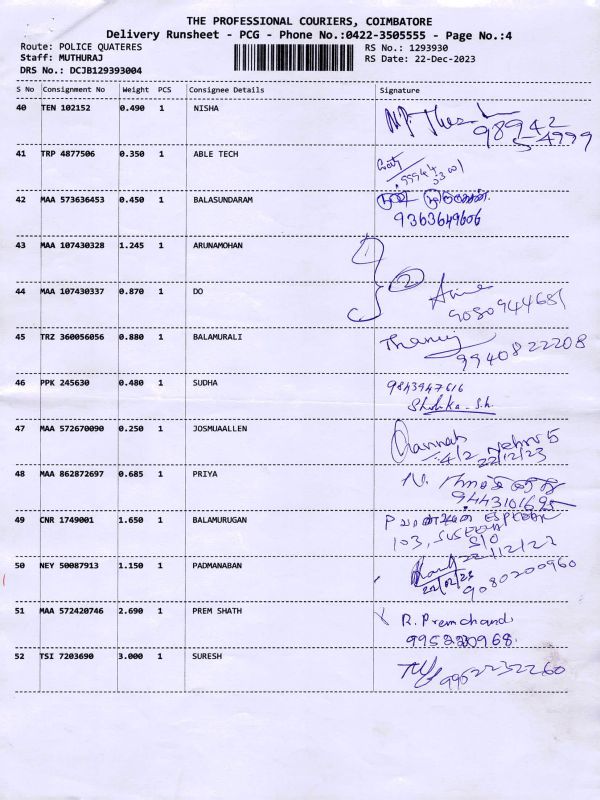 THE PROFESSIONAL COURIERS, COIMBATORE
Delivery Runsheet - PCG - Phone No.:0422-3505555 - Page No.:4
Route: POLICE QUATERES RS No.: 1293930
Staff: MUTHURAJ RS Date: 22-Dec-2023
DRS No.: DCJB129393004
S No Consignment No Weight PCS Consignee Details Signature
40 TEN 102152 0.490 1 NISHA
98942
54999
41 TRP 4877506 0.350 1 ABLE TECH
42 MAA 573636453 0.450 1 BALASUNDARAM
9363649606
43 MAA 107430328 1.245 1 ARUNAMOHAN
44 MAA 107430337 0.870 1 DO
2
9080944681
45 TRZ 360056056 0.880 1 BALAMURALI
9940822208
46 PPK 245630 0.480 1 SUDHA 9843947616
47 MAA 572670090 0.250 1 JOSMUAALLEN
22/12/23
48 MAA 862872697 0.685 1 PRIYA
9443101695
49 CNR 1749001 1.650 1 BALAMURUGAN
103,
50 NEY 50087913 1.150 1 PADMANABAN
9080200960
51 MAA 572420746 2.690 1 PREM SHATH R. Premchand
52 TSI 7203690 3.000 1 SURESH
9952232260